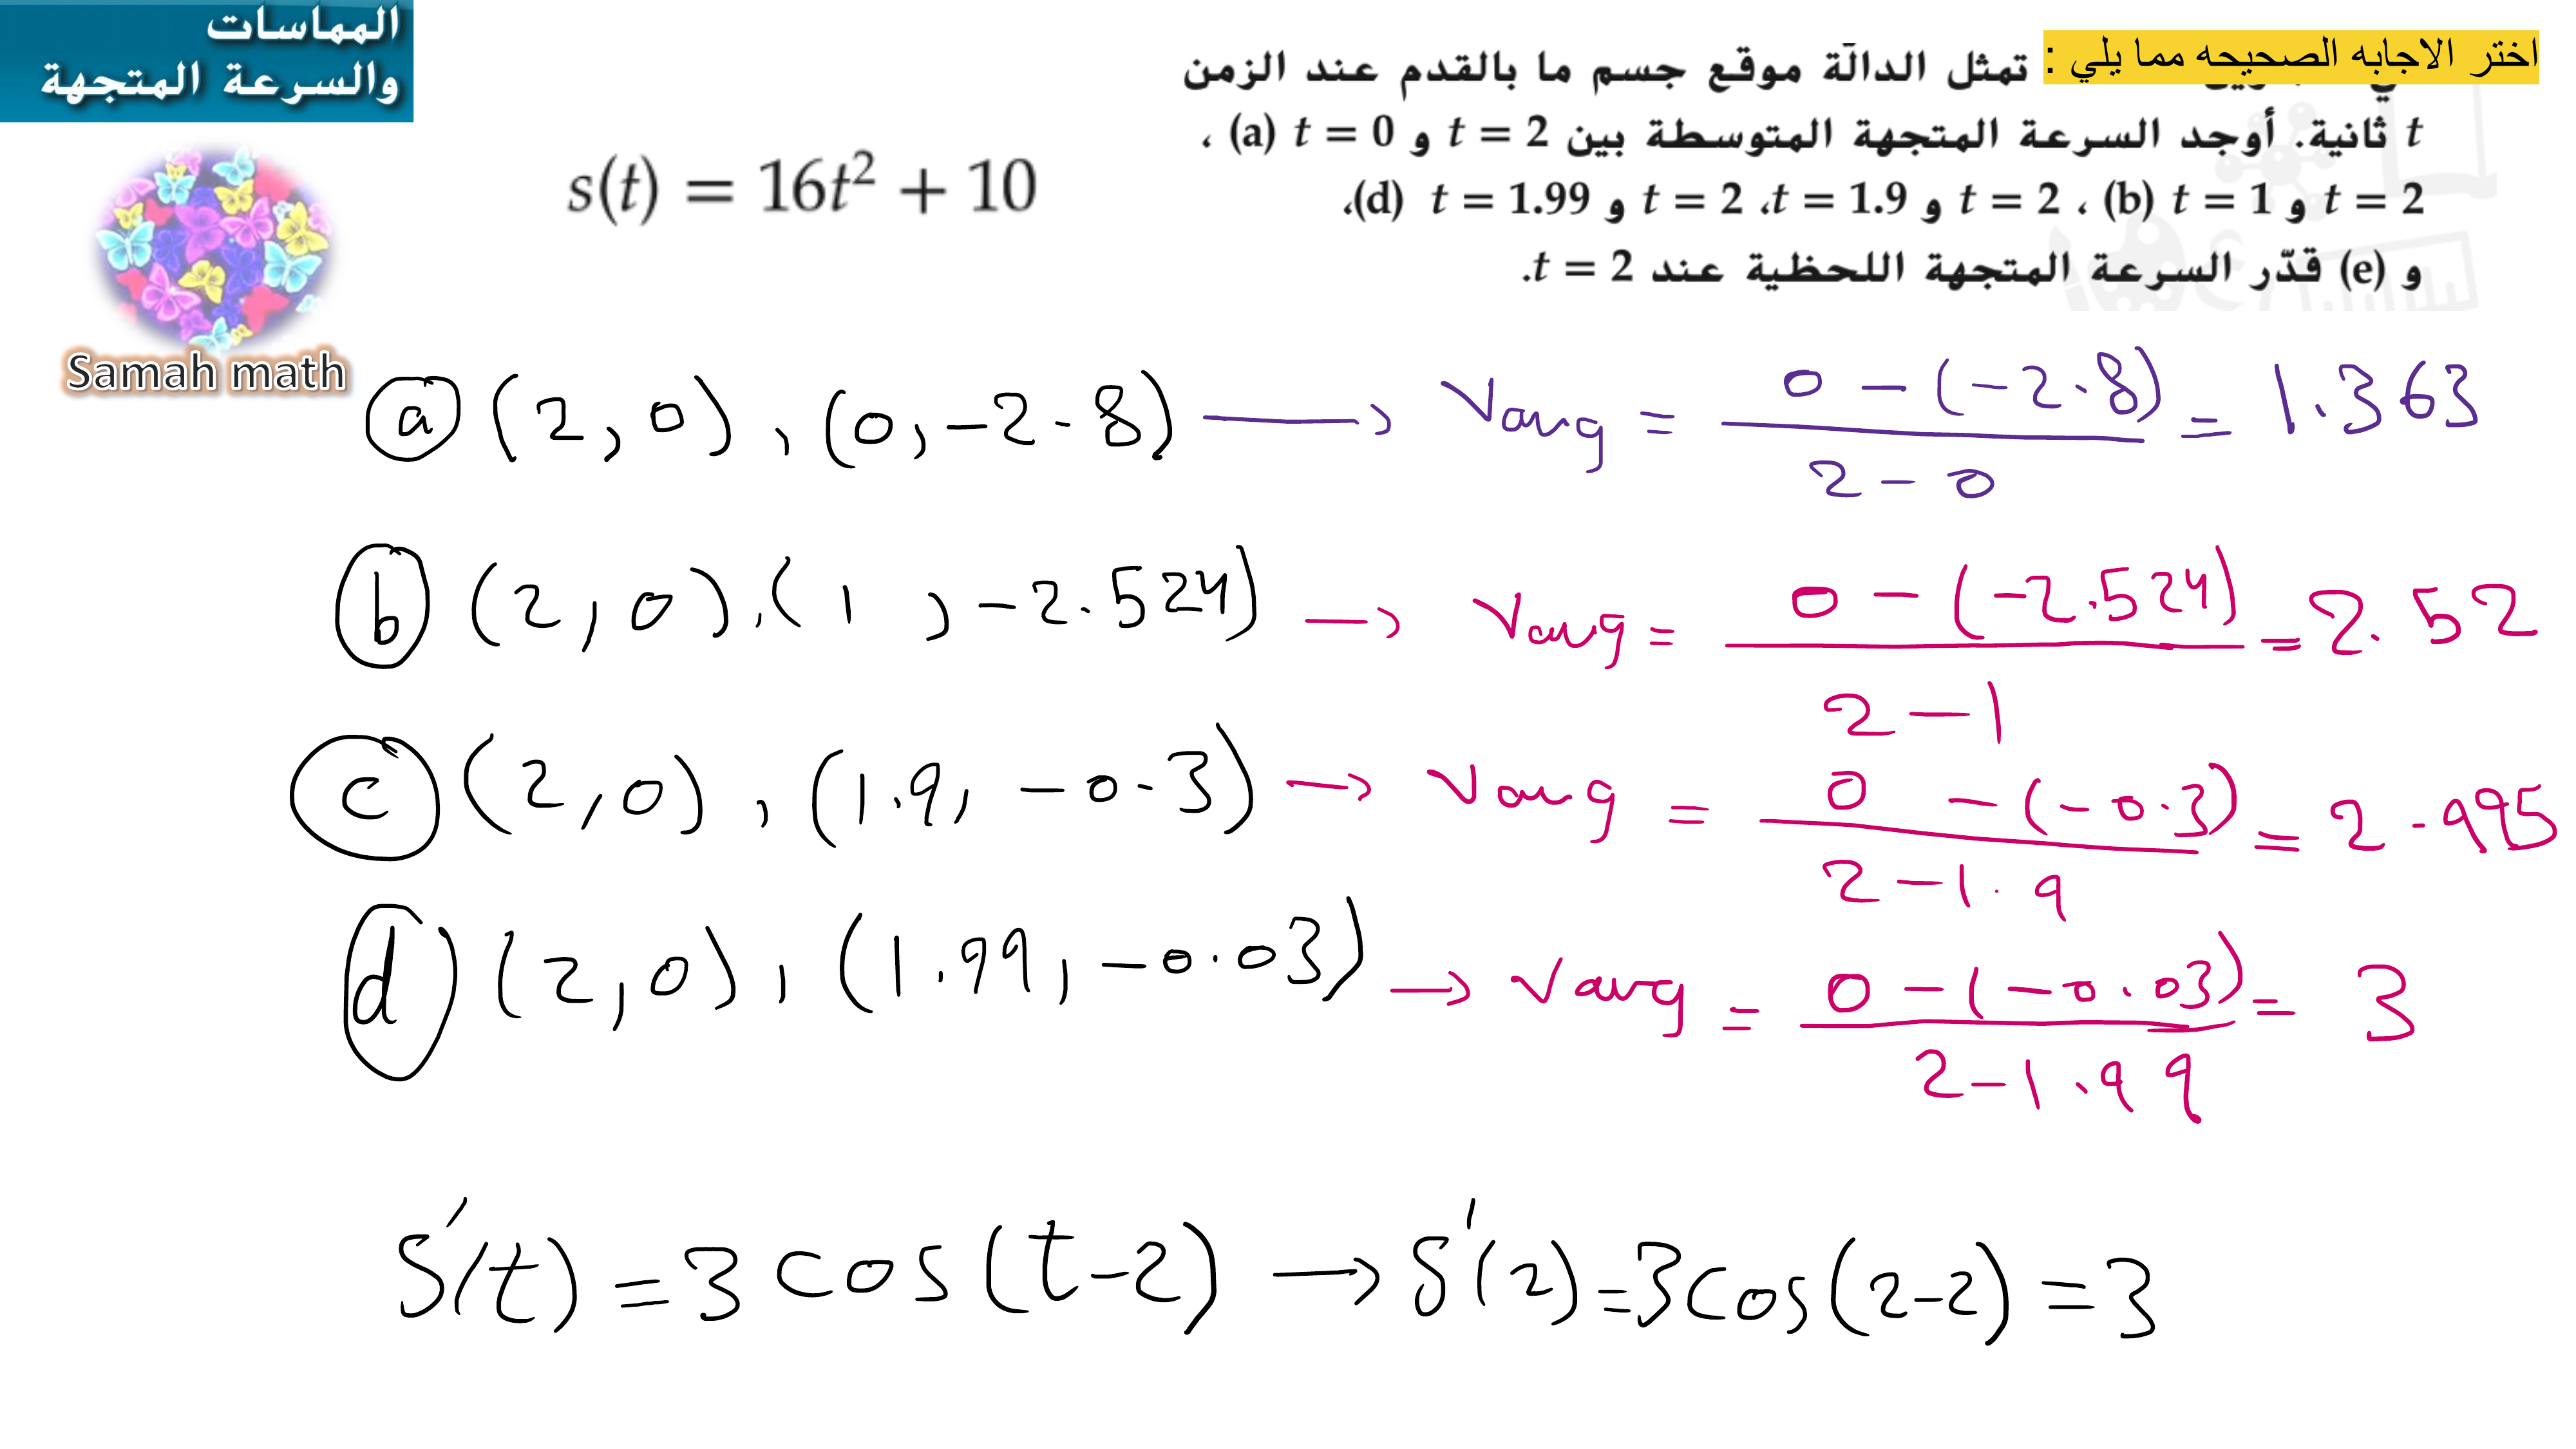 المماسات
والسرعة المتجهة
اختر الاجابه الصحيحه مما يلي :
تمثل الدالّة موقع جسم ما بالقدم عند الزمن
t ثانية. أوجد السرعة المتجهة المتوسطة بين t = 2 و t = 0 (a) ،
t = 2 و t = 1 (b) ، t = 2 و t = 1.9، t = 2 و t = 1.99 (d)،
و (e) قدّر السرعة المتجهة اللحظية عند t = 2.
s(t) = 16t² + 10
Samah math
a (2,0) , (0,-2.8) → Vavg = 0-(-2.8) / 2-0 = 1.363
b (2,0) , (1,-2.524) → Vavg = 0-(-2.524) / 2-1 = 2.52
c (2,0) , (1.9,-0.3) → Vavg = 0-(-0.3) / 2-1.9 = 2.995
d (2,0) , (1.99,-0.03) → Vavg = 0-(-0.03) / 2-1.99 = 3
S'(t) = 3 cos(t-2) → S'(2) = 3cos(2-2) = 3